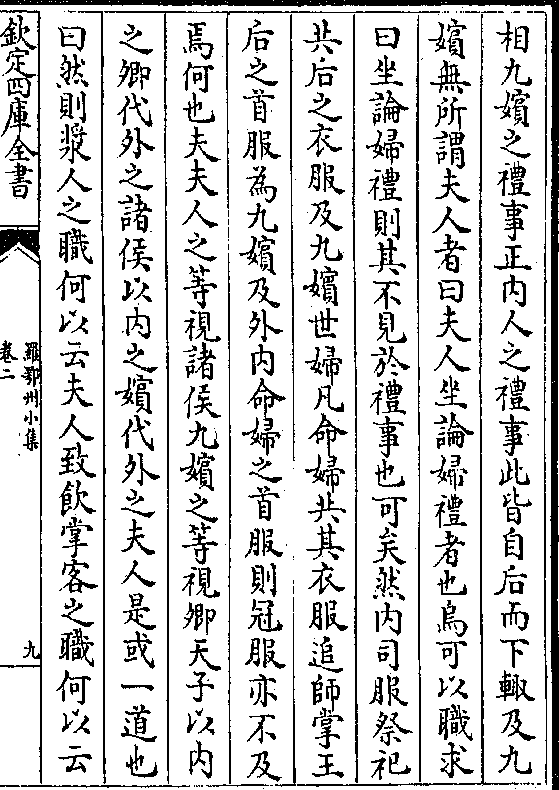 相九嬪之禮事正内人之禮事此皆自后而下輙及九
嬪無所謂夫人者曰夫人坐論婦禮者也烏可以職求
曰坐論婦禮則其不見於禮事也可矣然内司服祭祀
共后之衣服及九嬪世婦凡命婦共其衣服追師掌王
后之首服為九嬪及外内命婦之首服則冠服亦不及
焉何也夫夫人之等視諸侯九嬪之等視卿天子以内
之卿代外之諸侯以内之嬪代外之夫人是或一道也
曰然則漿人之職何以云夫人致飲掌客之職何以云
欽定四庫全書
羅鄂州小集
卷二
九